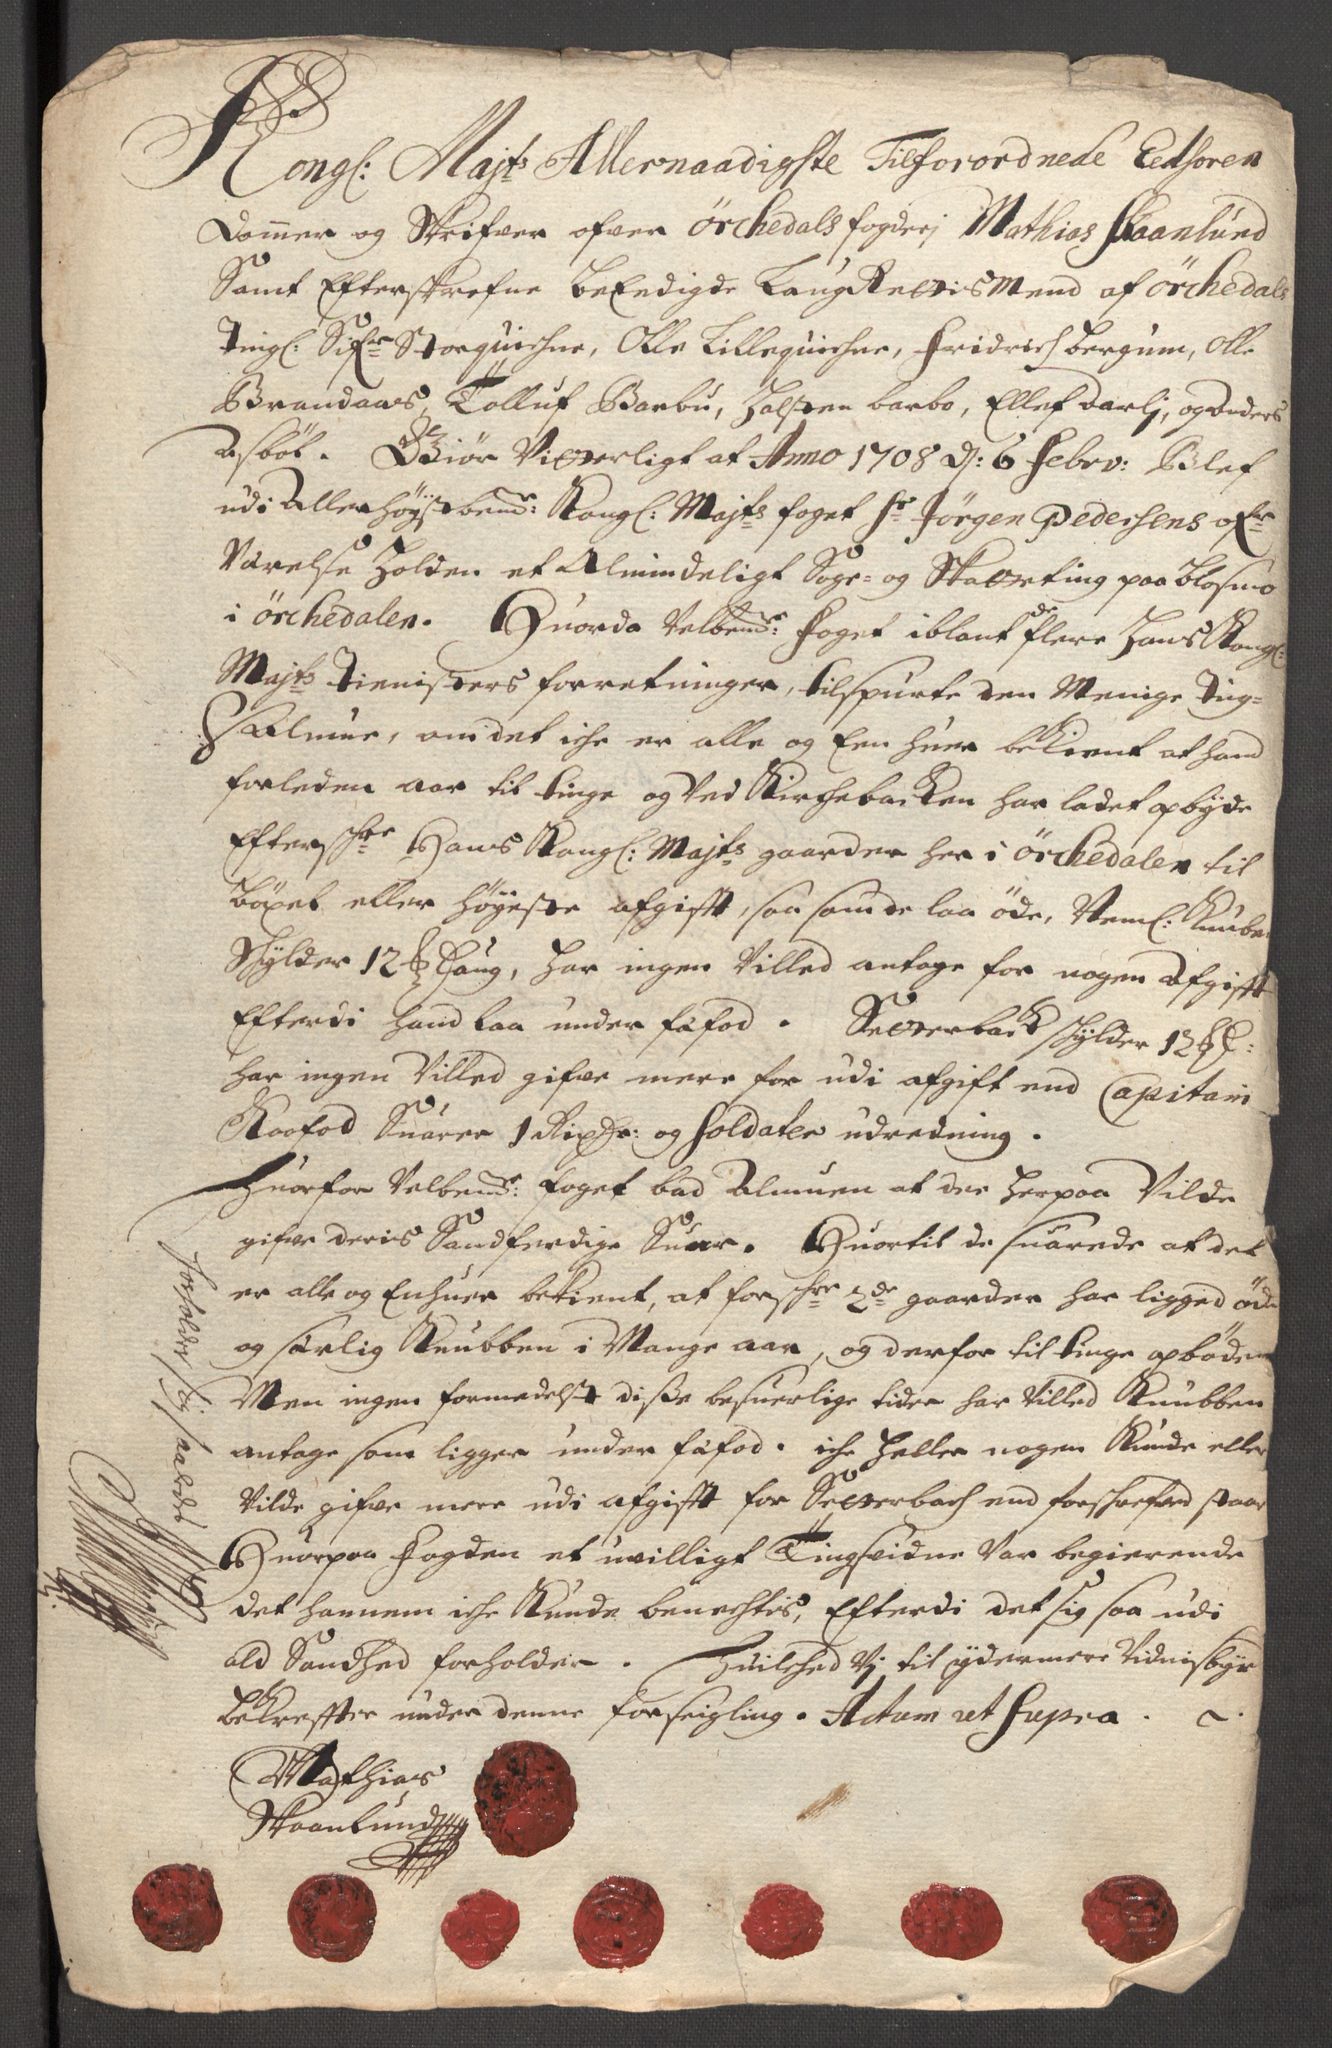 Kongl: Majts Allernaadigste Tilforordnede Eedsoren
Dommer og Skrifver ofver Örchedals fogderj Mathias Skaanlund
Samt Efterskrefne beEedigde LaugRettis Mend af Örchedals
Tingl: Sifr Storquichne, Olle Lillequichne, Fridrich bergum, Olle
Brandaas, Tolluf Barbu, Halsten barbo, Ellef Darlj, og Anders
Asböt. Giör Vitterligt at Anno 1708 d: 6 Febrv: Blef
udi Aller höystbemte: Kongl: Majts foget Sr Jörgen Pedersens ofr
Værelse Holden et Almindeligt Sage- og Skatteting paa Blosmo
i Örchedalen. Huorda Velbemte: Foget iblant flere Hans Kongl:
Majts Tienisters forretninger, tilspurte den Menige Ting-
Almue, om det iche er alle og Een huer bekient at hand
forleden aar til tinge og Ved Kirchebacken har ladet opbyde
Efterschrne Hans Kongl: Majts gaarder her i Örchedalen til
böxel eller höyeste afgifft, saa som de laa öde, Neml: Knube
Schylder 12 Haug, har ingen Villed antage for nogen Afgifft
Efterdi hand laa under fæfod. Setterback schylder 12
har ingen Villed gifve mere for udi afgift end Capitain
Kaafod Suarer 1 Rixdr: og Soldaten udredning.
Huorfor Velbemte: foget bad Almuen at de herpaa Vilde
gifve deris Sandferdige Suar. Huortil de suarede at det
er alle og Enhuer bekient, at forschrne 2de gaarder har ligged öde
og særlig Knubben i Mange aar, og derfor til tinge opböden
Men ingen formedelst disse besuerlige tider har Villed Knubben
antage som ligger under fæfod. iche heller nogen Kunde eller
Vilde gifve mere udi afgifft for Setterbach end forschrefved staar
Huorpaa Fogden et uvilligt Tingsvidne Var begierende
det hannem iche Kunde benechtis, Efterdi det sig saa udi
ald Sandhed forholder. Huilched Vj til ydermere Vidnisbyr
bekreffter under denne forseigling. Actum ut Supra.
Mathias
Skaanlund
forholder sig saaledes